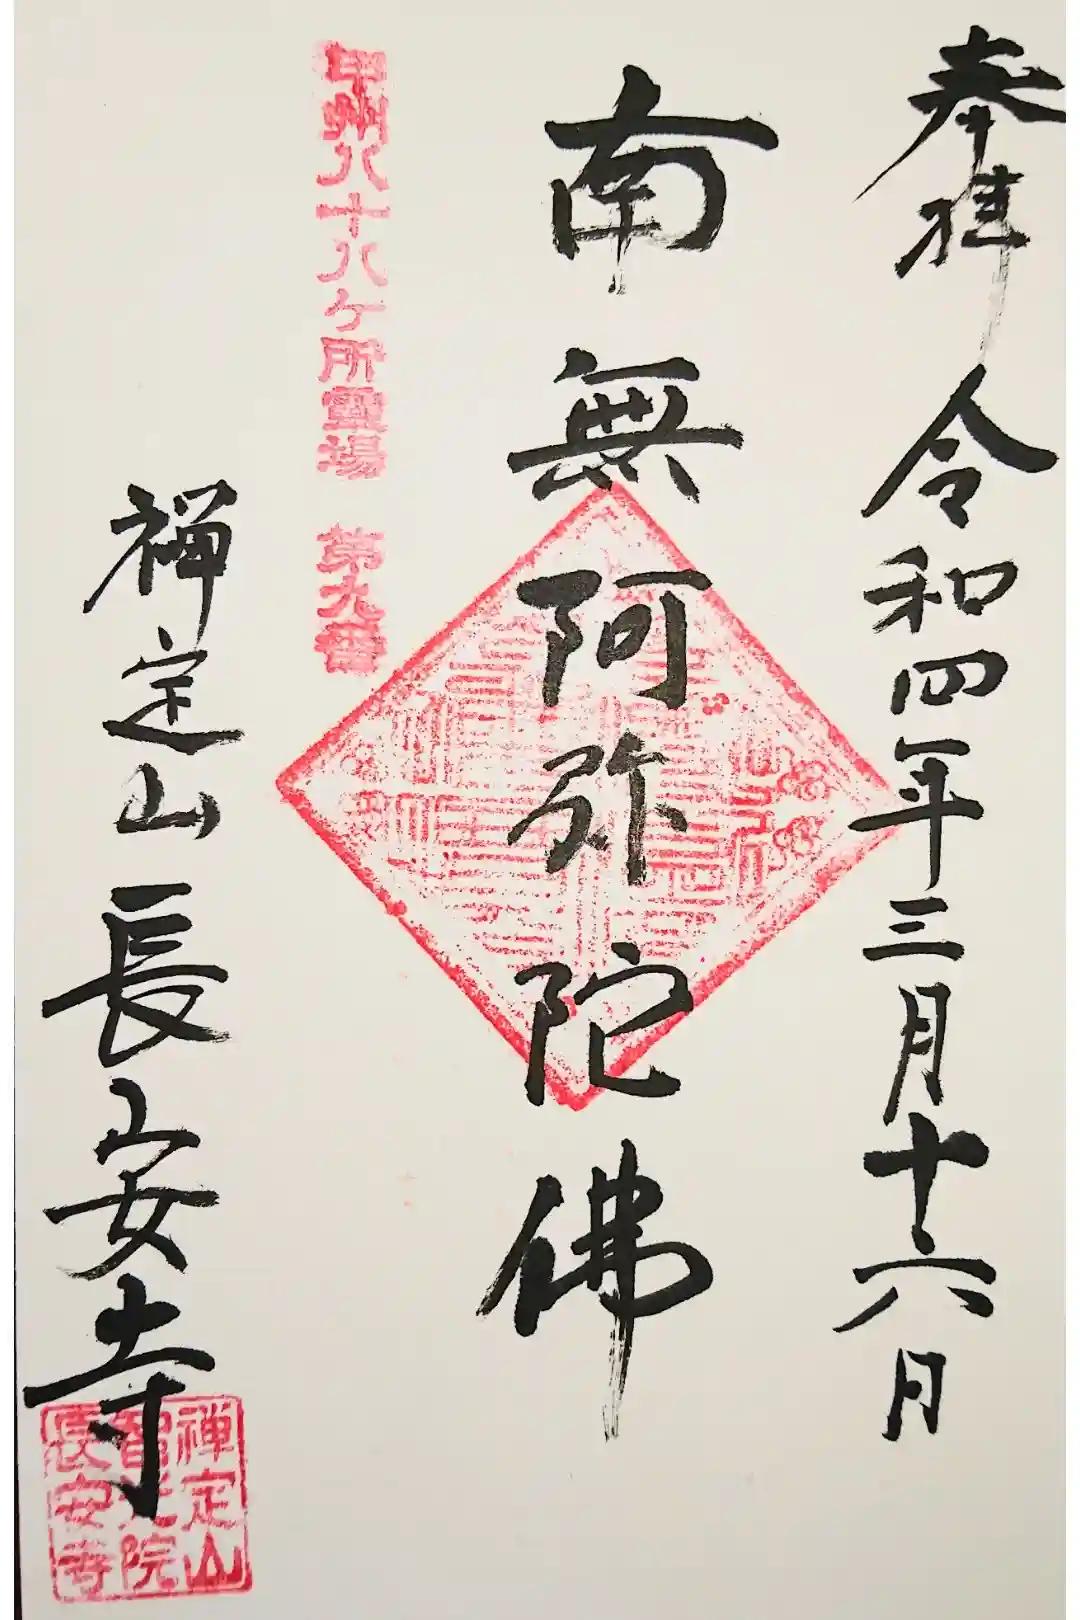 奉拝 令和四年三月十六日
南無阿弥陀佛
甲州八十八ケ所霊場 第九番
禅定山長安寺
禅定山
智光院
長安寺